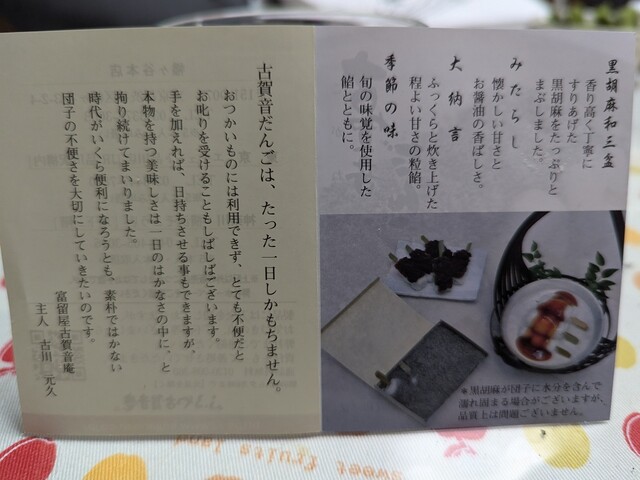 黒胡麻和三盆
香り高く丁寧に
すりあげた
黒胡麻をたっぷりと
まぶしました。
みたらし
懐かしい甘さと
お醤油の香ばしさ。
大納言
ふっくらと炊き上げた
程よい甘さの粒餡。
季節の味
旬の味覚を使用した
餡とともに。
＊黒胡麻が団子に水分を含んで
濡れ固まる場合がございますが、
品質上は問題ございません。
古賀音だんごは、たった一日しかもちません。
おつかいものには利用できず、とても不便だと
お叱りを受けることもしばしばございます。
手を加えれば、日持ちさせる事もできますが、
本物を持つ美味しさは一日のはかなさの中に、と
拘り続けてまいりました。
時代がいくら便利になろうとも、素朴ではかない
団子の不便さを大切にしていきたいのです。
富留屋古賀音庵
主人　古川　元久
sweet fruits land